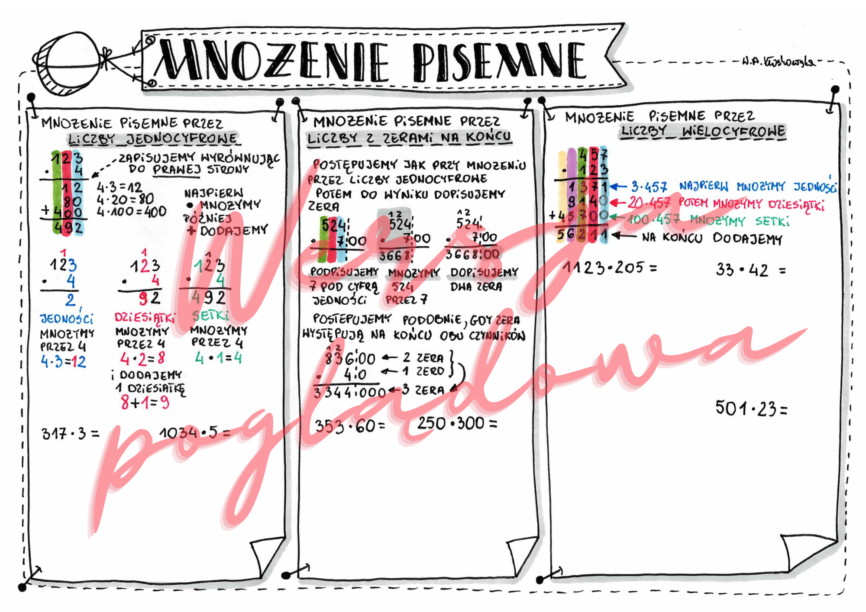 MNOŻENIE PISEMNE
MNOŻENIE PISEMNE PRZEZ
LICZBY JEDNOCYFROWE
123
· 4
12
80
+400
492
ZAPISUJEMY WYRÓWNUJĄC
DO PRAWEJ STRONY
4·3=12
4·20=80
4·100=400
NAJPIERW
· MNOŻYMY
PÓŹNIEJ
+ DODAJEMY
1
123
· 4
2
JEDNOŚCI
MNOŻYMY
PRZEZ 4
4·3=12
1
123
· 4
92
DZIESIĄTKI
MNOŻYMY
PRZEZ 4
4·2=8
i DODAJEMY
1 DZIESIĄTKĘ
8+1=9
1
123
· 4
492
SETKI
MNOŻYMY
PRZEZ 4
4·1=4
317·3=
1034·5=
MNOŻENIE PISEMNE PRZEZ
LICZBY Z ZERAMI NA KOŃCU
POSTĘPUJEMY JAK PRZY MNOŻENIU
PRZEZ LICZBY JEDNOCYFROWE
POTEM DO WYNIKU DOPISUJEMY
ZERA
524
· 7:00
PODPISUJEMY
7 POD CYFRĄ
JEDNOŚCI
1 2
524
· 7:00
3668:
MNOŻYMY
524
PRZEZ 7
1 2
524
· 7:00
3668:00
DOPISUJEMY
DWA ZERA
POSTEPUJEMY PODOBNIE, GDY ZERA
WYSTĘPUJĄ NA KOŃCU OBU CZYNNIKÓW
1 2
836:00 ← 2 ZERA
· 4:0 ← 1 ZERO
3344:000 ← 3 ZERA
353·60=
250·300=
MNOŻENIE PISEMNE PRZEZ
LICZBY WIELOCYFROWE
457
· 123
1371 ← 3·457 NAJPIERW MNOŻYMY JEDNOŚCI
9140 ← 20·457 POTEM MNOŻYMY DZIESIĄTKI
+45700 ← 100·457 MNOŻYMY SETKI
56211 ← NA KOŃCU DODAJEMY
1123·205=
33·42=
501·23=
Wersja
poglądowa